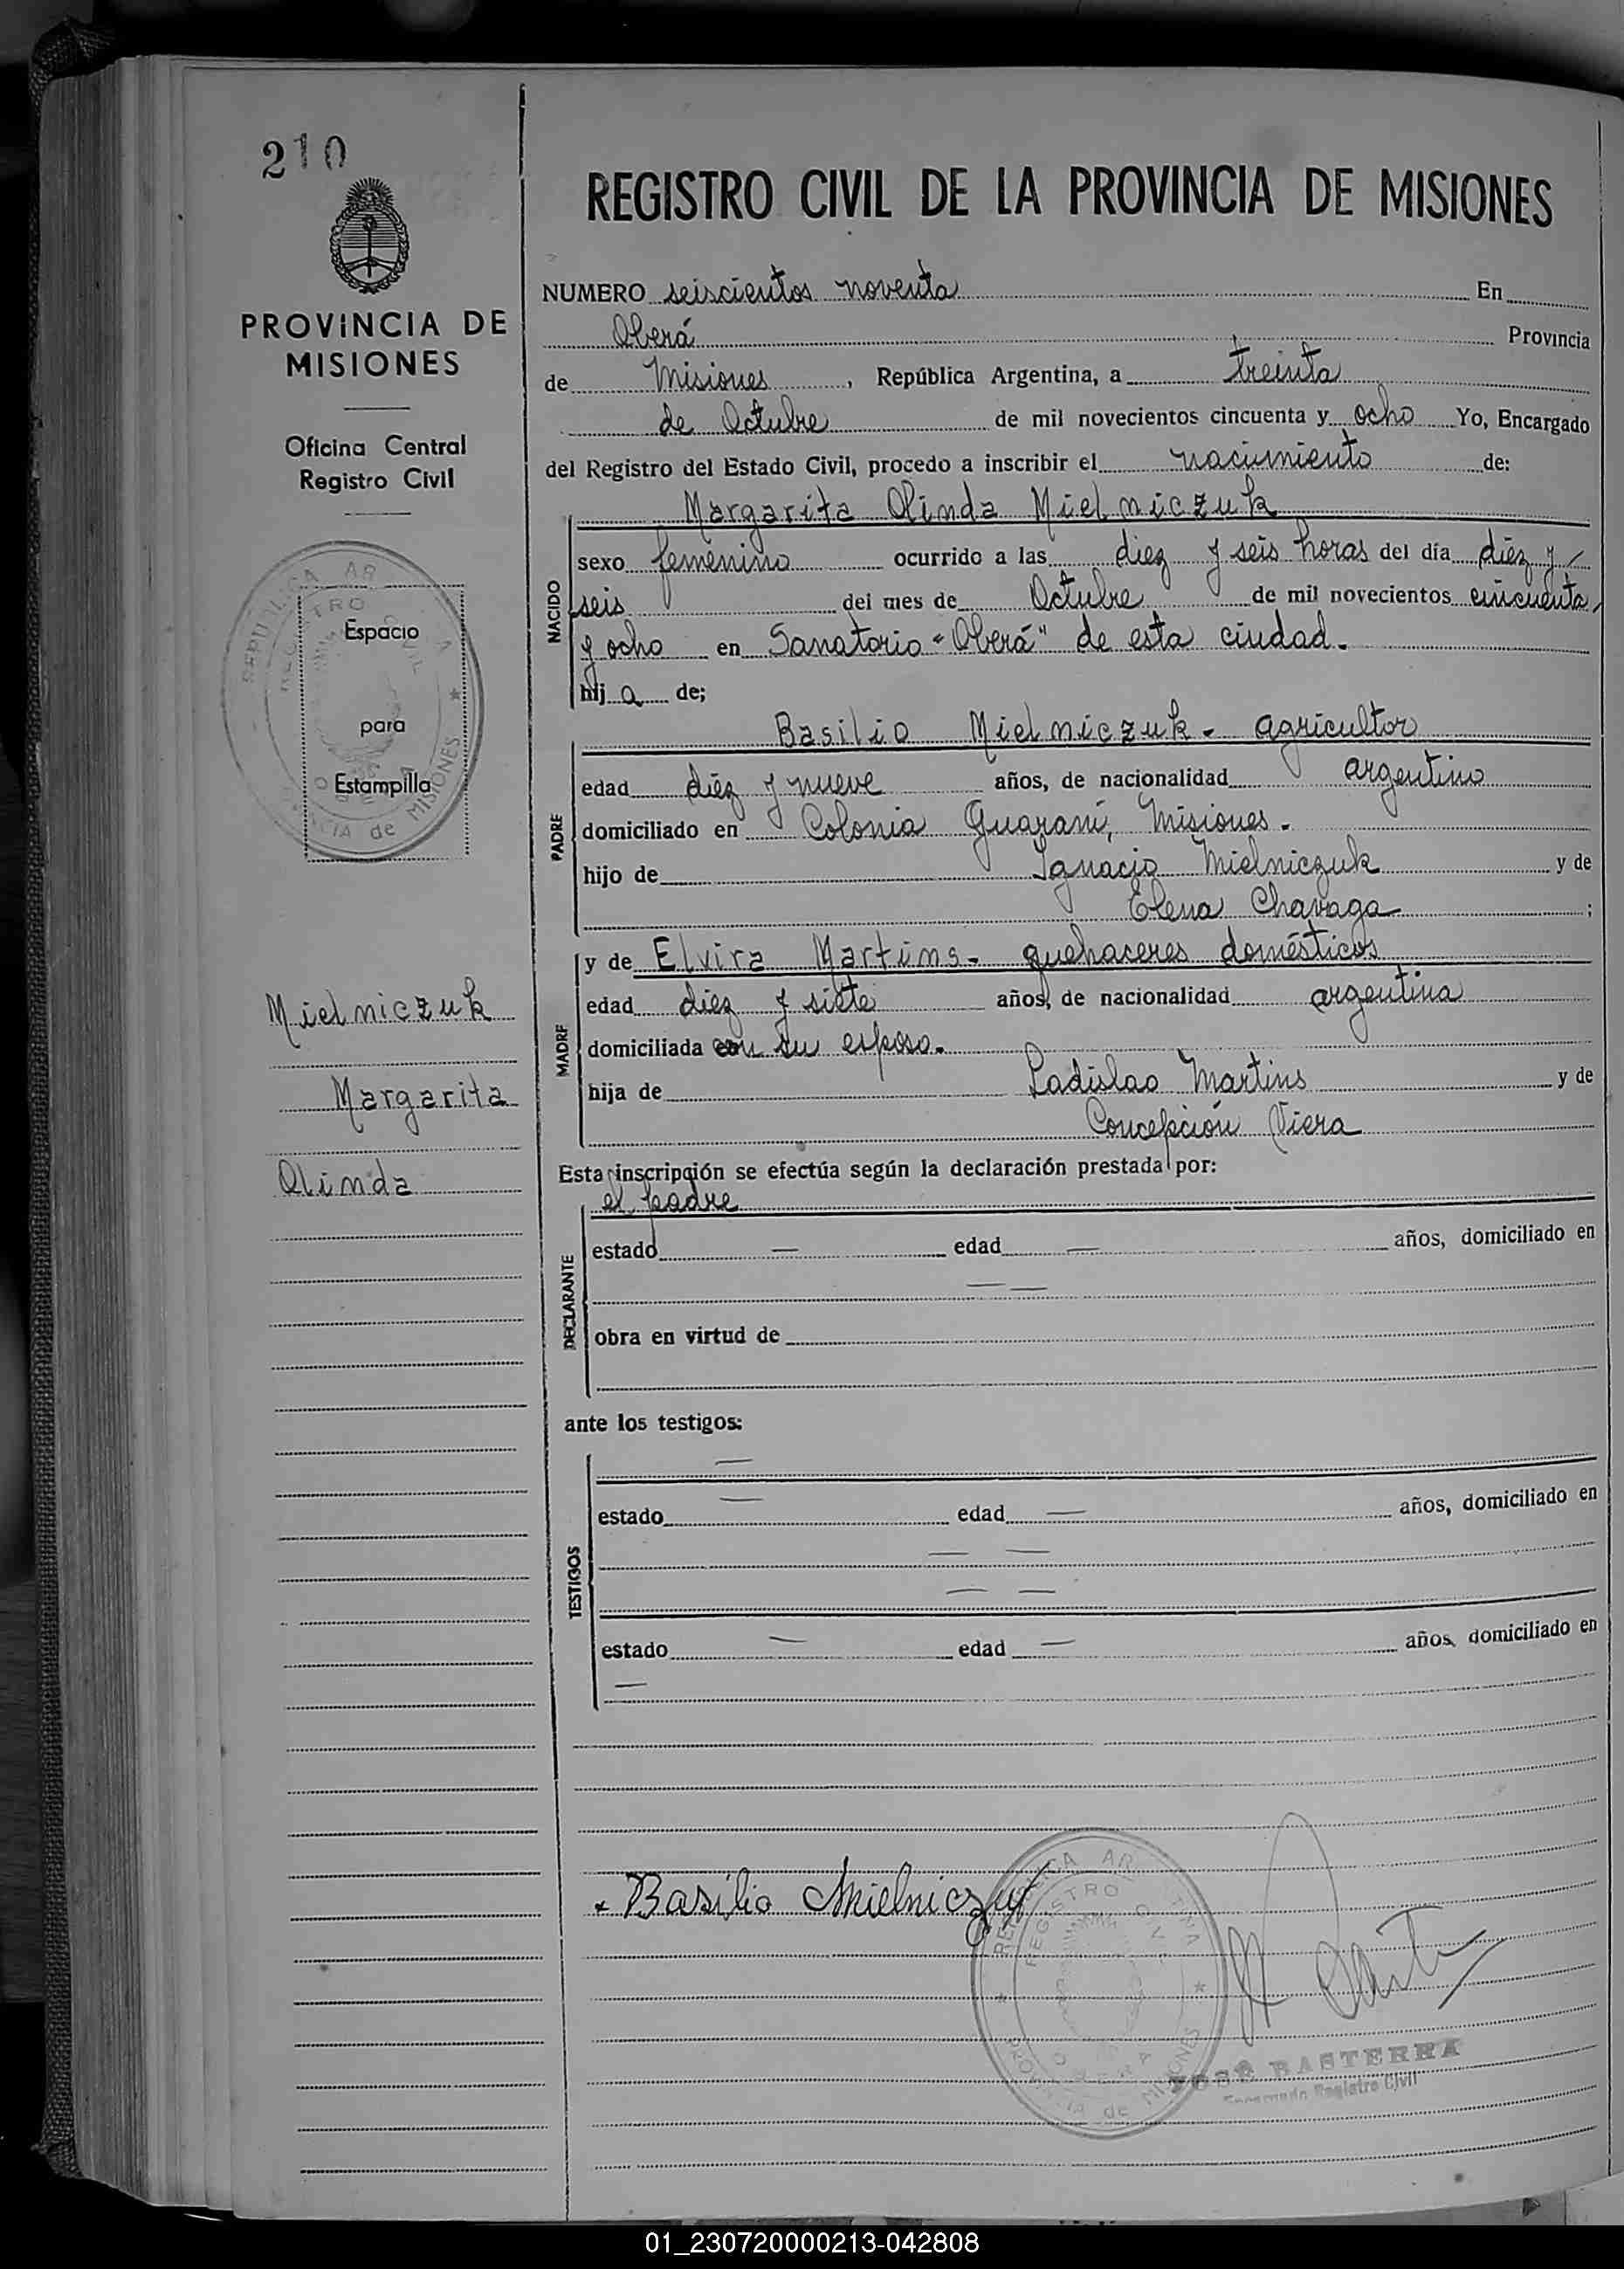 210
PROVINCIA DE
MISIONES
Oficina Central
Registro Civil
Espacio
para
Estampilla
Mielniczuk
Margarita
Olinda
REGISTRO CIVIL DE LA PROVINCIA DE MISIONES
NUMERO seiscientos noventa En
Oberá Provincia
de Misiones, República Argentina, a treinta
de Octubre de mil novecientos cincuenta y ocho Yo, Encargado
del Registro del Estado Civil, procedo a inscribir el nacimiento de:
Margarita Olinda Mielniczuk
NACIDO
sexo femenino ocurrido a las diez y seis horas del día diez y
seis del mes de Octubre de mil novecientos cincuenta
y ocho en Sanatorio "Oberá" de esta ciudad.
hija de;
Basilio Mielniczuk - agricultor
PADRE
edad diez y nueve años, de nacionalidad argentino
domiciliado en Colonia Guaraní, Misiones.
hijo de Ignacio Mielniczuk y de
Elena Chavaga;
y de Elvira Martins - quehaceres domésticos
MADRE
edad diez y siete años, de nacionalidad argentina
domiciliada con su esposo.
hija de Ladislao Martins y de
Concepción Viera
Esta inscripción se efectúa según la declaración prestada por:
el padre
DECLARANTE
estado — edad — años, domiciliado en
— —
obra en virtud de
ante los testigos:
—
TESTIGOS
estado — edad — años, domiciliado en
— —
— —
estado — edad — años, domiciliado en
—
Basilio Mielniczuk
REPUBLICA ARGENTINA
REGISTRO CIVIL
OBERA
PROVINCIA de MISIONES
JOSÉ BASTERRA
Encargado Registro Civil
01_230720000213-042808